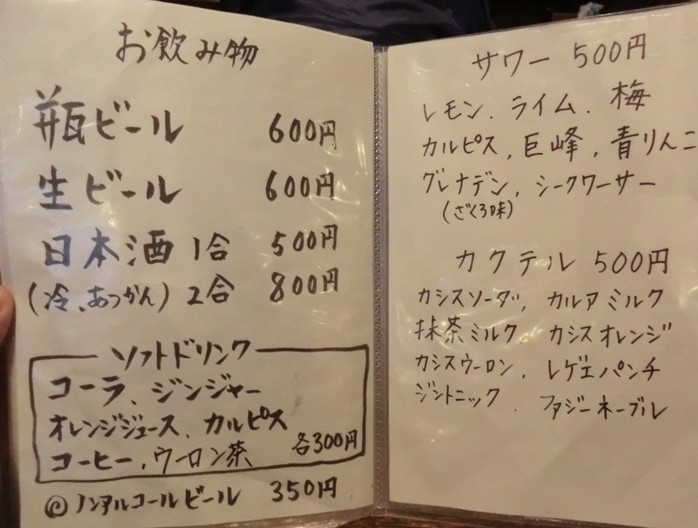 お飲み物
瓶ビール 600円
生ビール 600円
日本酒 1合 500円
(冷、あつかん) 2合 800円
ソフトドリンク
コーラ、ジンジャー
オレンジジュース、カルピス
コーヒー、ウーロン茶 各300円
◎ノンアルコールビール 350円
サワー 500円
レモン、ライム、梅
カルピス、巨峰、青りんご
グレナデン、シークワーサー
(ざくろ味)
カクテル 500円
カシスソーダ、カルアミルク
抹茶ミルク、カシスオレンジ
カシスウーロン、レゲエパンチ
ジントニック、ファジーネーブル